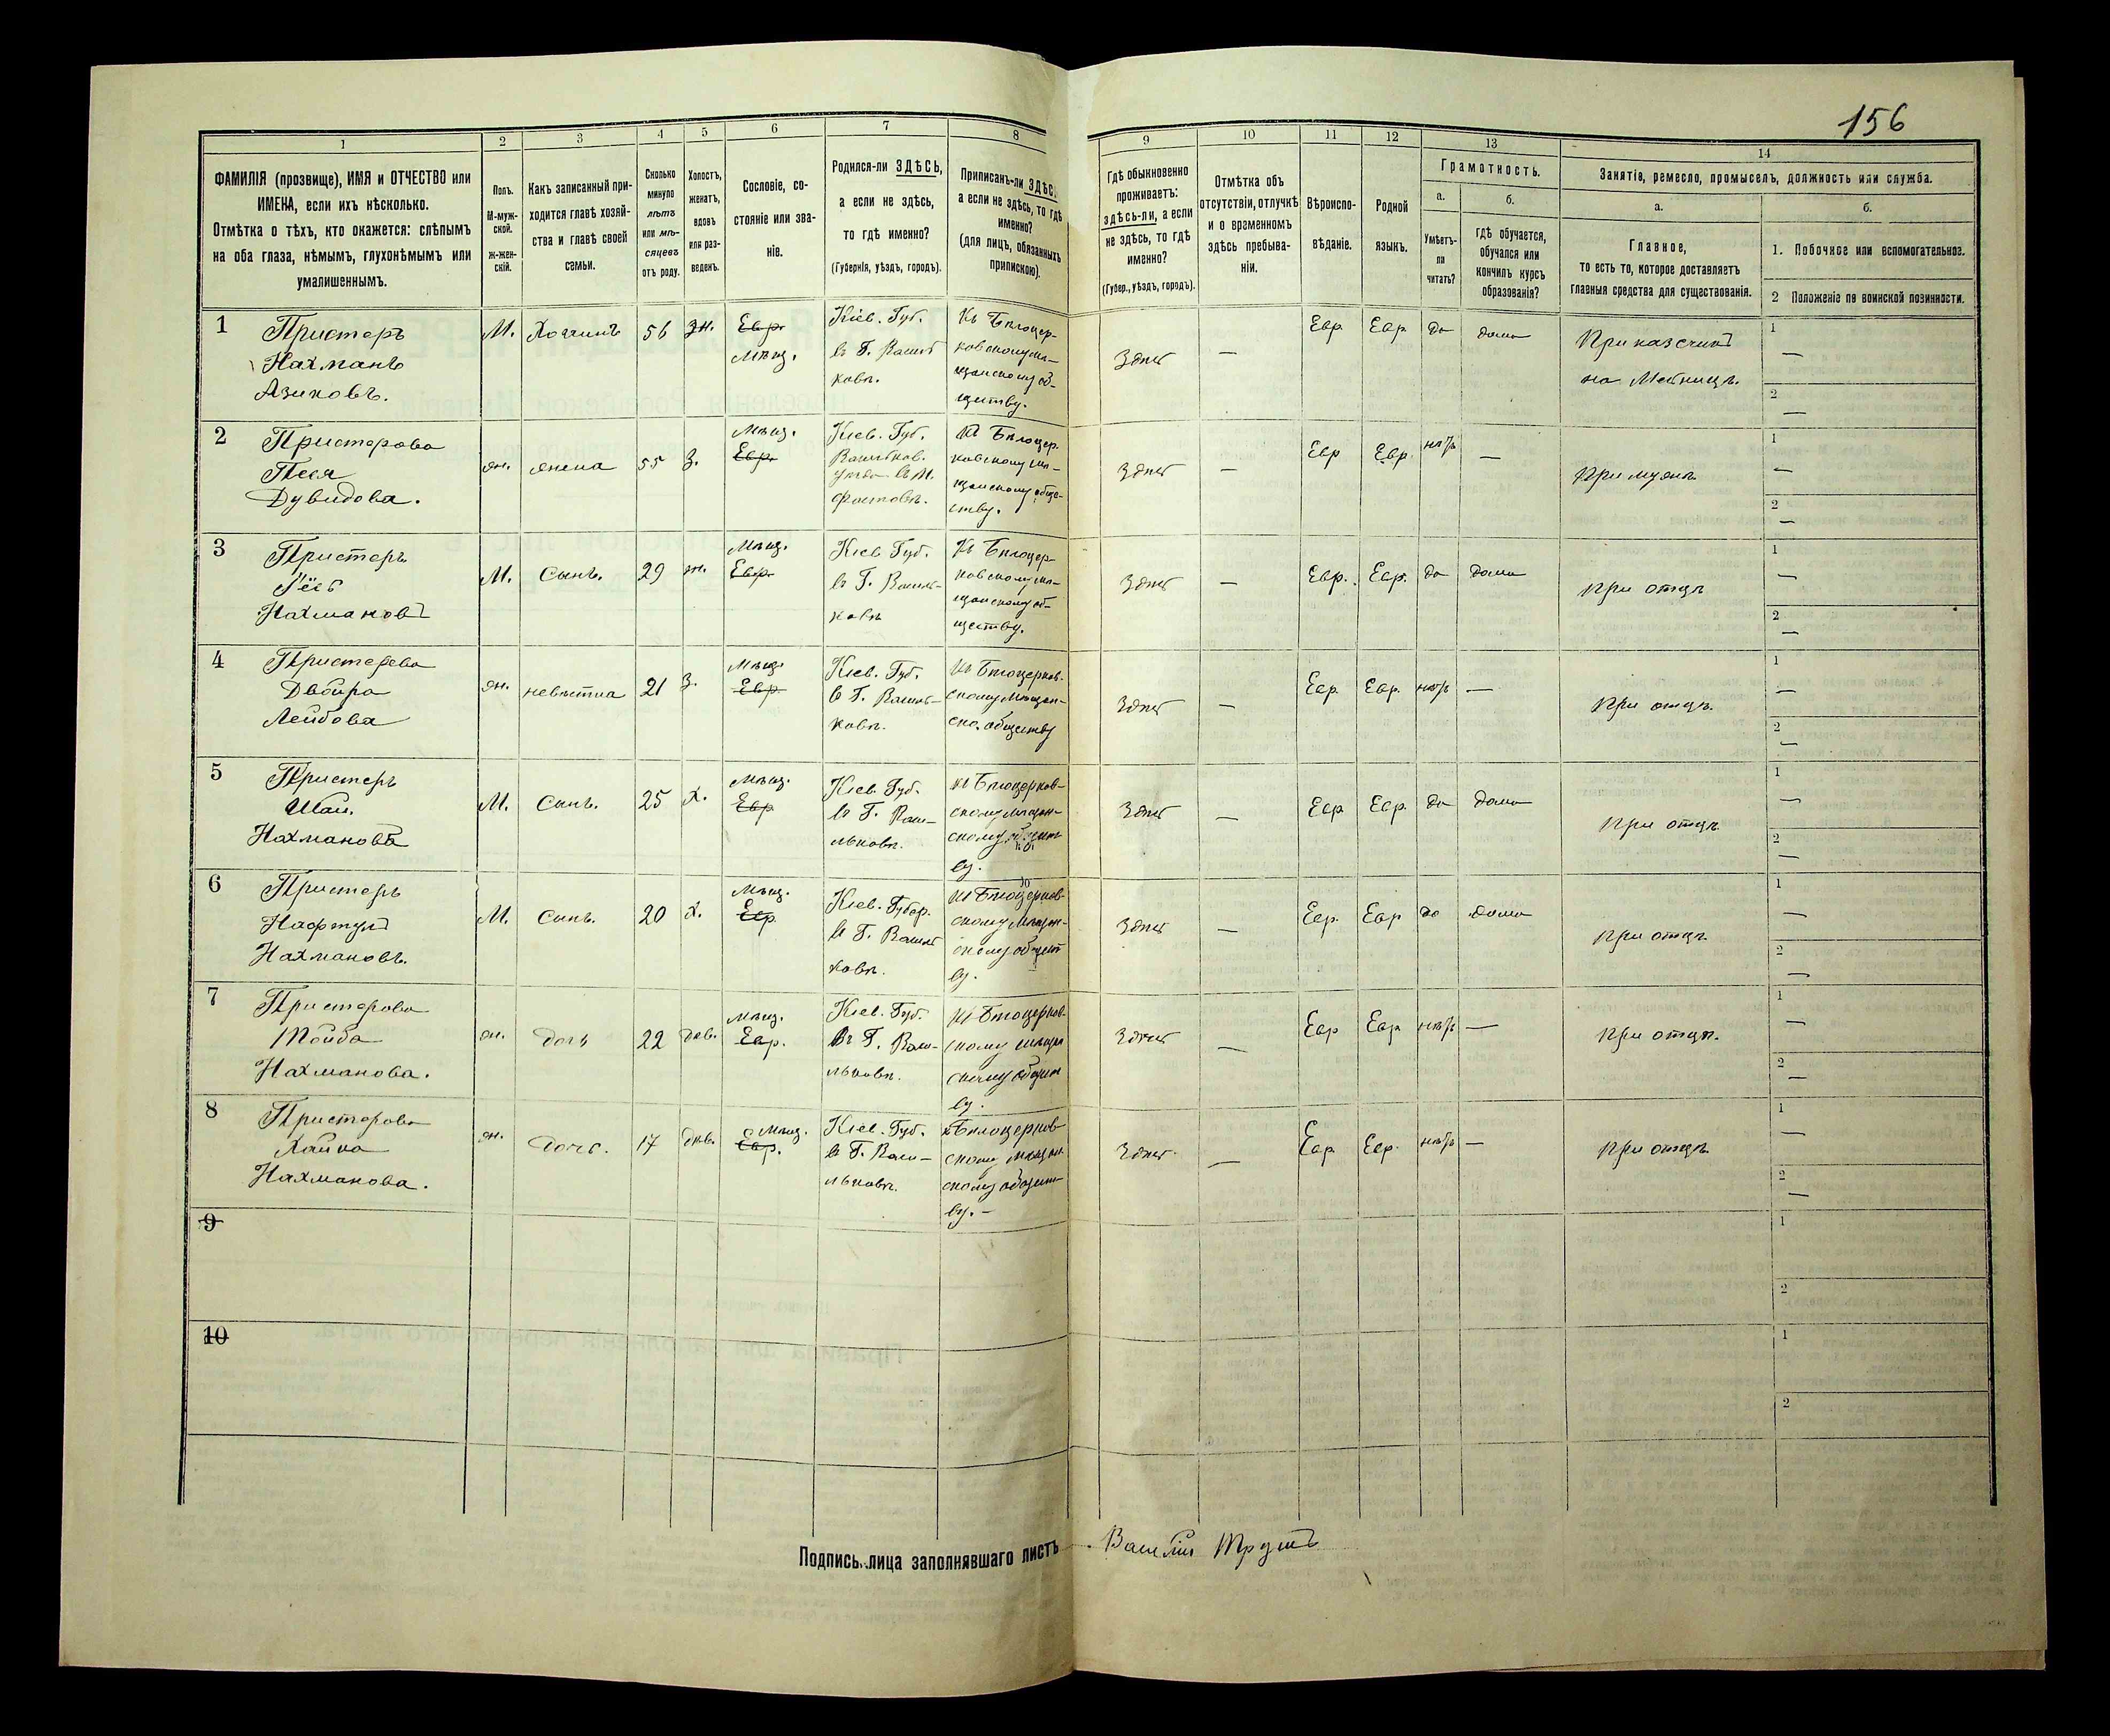 156
1
2
3
4
5
6
7
8
9
10
11
12
13
14
ФАМИЛІЯ (прозвище), ИМЯ и ОТЧЕСТВО или
ИМЕНА, если ихъ нѣсколько.
Отмѣтка о тѣхъ, кто окажется: слѣпымъ
на оба глаза, нѣмымъ, глухонѣмымъ или
умалишеннымъ.
Полъ.
М-муж-
ской.
ж-жен-
скій.
Какъ записанный при-
ходится главѣ хозяй-
ства и главѣ своей
семьи.
Сколько
минуло
лѣтъ
или мѣ-
сяцевъ
отъ роду.
Холостъ,
женатъ,
вдовъ
или раз-
веденъ.
Сословіе, со-
стояніе или зва-
ніе.
Родился-ли ЗДѢСЬ,
а если не здѣсь,
то гдѣ именно?
(Губернія, уѣздъ, городъ).
Приписанъ-ли ЗДѢС
а если не здѣсь, то гдѣ
именно?
(для лицъ, обязанныхъ
припискою).
Гдѣ обыкновенно
проживаетъ:
здѣсь-ли, а если
не здѣсь, то гдѣ
именно?
(Губер., уѣздъ, городъ).
Отмѣтка объ
отсутствіи, отлучкѣ
и о временномъ
здѣсь пребыва-
ніи.
Вѣроиспо-
вѣданіе.
Родной
языкъ.
Грамотность.
а.
Умѣетъ-
ли
читать?
б.
Гдѣ обучается,
обучался или
кончилъ курсъ
образованія?
Занятіе, ремесло, промыселъ, должность или служба.
а.
Главное,
то есть то, которое доставляетъ
главныя средства для существованія.
б.
1. Побочное или вспомогательное.
2 Положеніе по воинской повинности.
1
Пристеръ
Нахманъ
Азиковъ.
М.
Хозяинъ
56
ж.
Евр.
Мѣщ.
Кіев. Губ.
въ Г. Василь
ковѣ.
Къ Бѣлоцер-
ковскому мѣ-
щанскому об-
ществу.
Здѣсь
—
Евр
Евр
да
дома
Приказчикъ
1
—
2
—
2
Пристерова
Песя
Дувидова.
жн.
жена
55
З.
Мѣщ.
Евр.
Кіев. Губ.
Васильков.
Къ Бѣлоцер.
ковскому мѣ-
щанскому обще-
ству.
Здѣсь
—
Евр
Евр.
нѣтъ
—
При мужѣ
1
—
2
—
3
Пристеръ
Нахмановъ
М.
Сынъ.
29
ж.
Мѣщ.
Евр.
Кіев Губ.
въ Г. Василь-
ковѣ
Къ Бѣлоцер-
ковскому мѣ-
щанскому об-
ществу.
Здѣсь
—
Евр.
Евр.
да
дома
при отцѣ
1
—
2
—
4
Пристерова
Двойра
Лейбова
жн.
невѣстка
21
З.
Мѣщ.
Евр
Кіев. Губ.
въ Г. Василь-
ковѣ.
Къ Бѣлоцерков.
скому Мѣщан-
ско. обществу
Здѣсь
—
Евр
Евр.
нѣтъ
—
При отцѣ.
1
—
2
—
5
Пристеръ
Шая.
Нахмановъ
М.
Сынъ.
25
Х.
Мѣщ.
Евр
Кіев. Губ.
въ Г. Васи-
льковѣ.
Къ Бѣлоцерков-
скому мѣщан-
ву.
Здѣсь
—
Евр
Евр.
да
дома
При отцѣ.
1
—
2
—
6
Пристеръ
Нафтулъ
Нахмановъ.
М.
Сынъ.
20
Х.
Мѣщ.
Евр.
Кіев. Губер.
въ Г. Василь
ковѣ.
Къ Бѣлоцерков-
скому Мѣщан-
скому общест
ву.
Здѣсь
—
Евр.
Евр
да
дома
При отцѣ
1
—
2
—
7
Пристерова
Тойба
Нахманова.
жн.
дочь
22
дѣв.
Мѣщ.
Евр.
Кіев. Губ.
Въ Г. Васи-
льковѣ.
Къ Бѣлоцерков-
скому мѣщан
скому общест
ву.
Здѣсь
—
Евр
Евр
нѣтъ
—
При отцѣ.
1
—
2
—
8
Пристерова
Хайка
Нахманова.
жн.
Дочь.
17
дѣв.
Мѣщ.
Евр.
Кіев. Губ.
въ Г. Васи-
льковѣ.
къ Бѣлоцерков
скому мѣщан
скому общест-
ву.-
Здѣсь.
—
Евр
Евр.
нѣтъ
—
При отцѣ.
1
—
2
—
9
1
2
10
1
2
Подпись лица заполнявшаго листъ